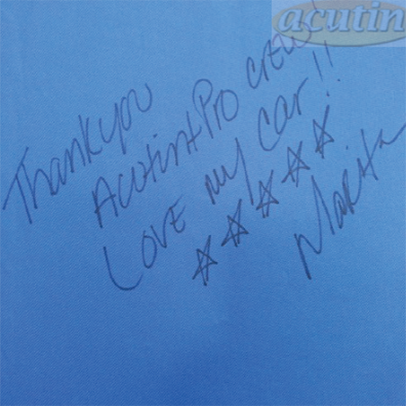 acutin
Thank you
AcutintPro crew
Love my car!!
☆☆☆☆☆
Marita